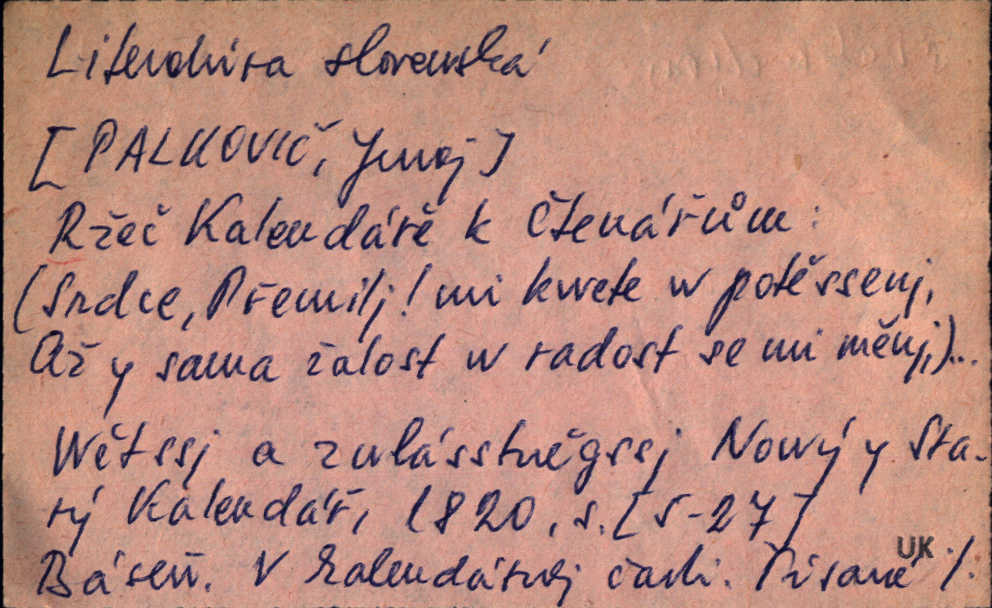 Literatúra slovenská
[PALKOVIČ, Juraj]
Ržeč Kalendáře k Čtenářům:
(Srdce, Přemilj! mi kwete w potěssenj,
Až y sama žalost w radost se mi měnj,)...
Wětssj a zwlásstněgssj Nowý y Sta-
rý Kalendář, 1820, s. [5-27]
Báseň. V kalendárnej časti. Písané
UK ./.